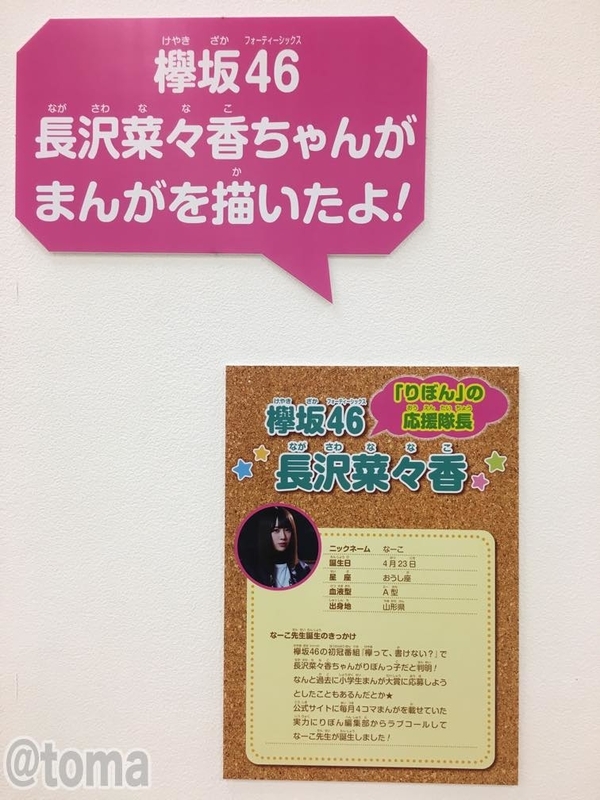 欅坂46
長沢菜々香ちゃんが
まんがを描いたよ!
「りぼん」の
応援隊長
欅坂46
長沢菜々香
ニックネーム なーこ
誕生日 4月23日
星座 おうし座
血液型 A型
出身地 山形県
なーこ先生誕生のきっかけ
欅坂46の初冠番組『欅って、書けない?』で
長沢菜々香ちゃんがりぼんっ子だと判明!
なんと過去に小学生まんが大賞に応募しよう
としたこともあるんだとか★
公式サイトに毎月4コマまんがを載せていた
実力にりぼん編集部からラブコールして
なーこ先生が誕生しました!
@toma